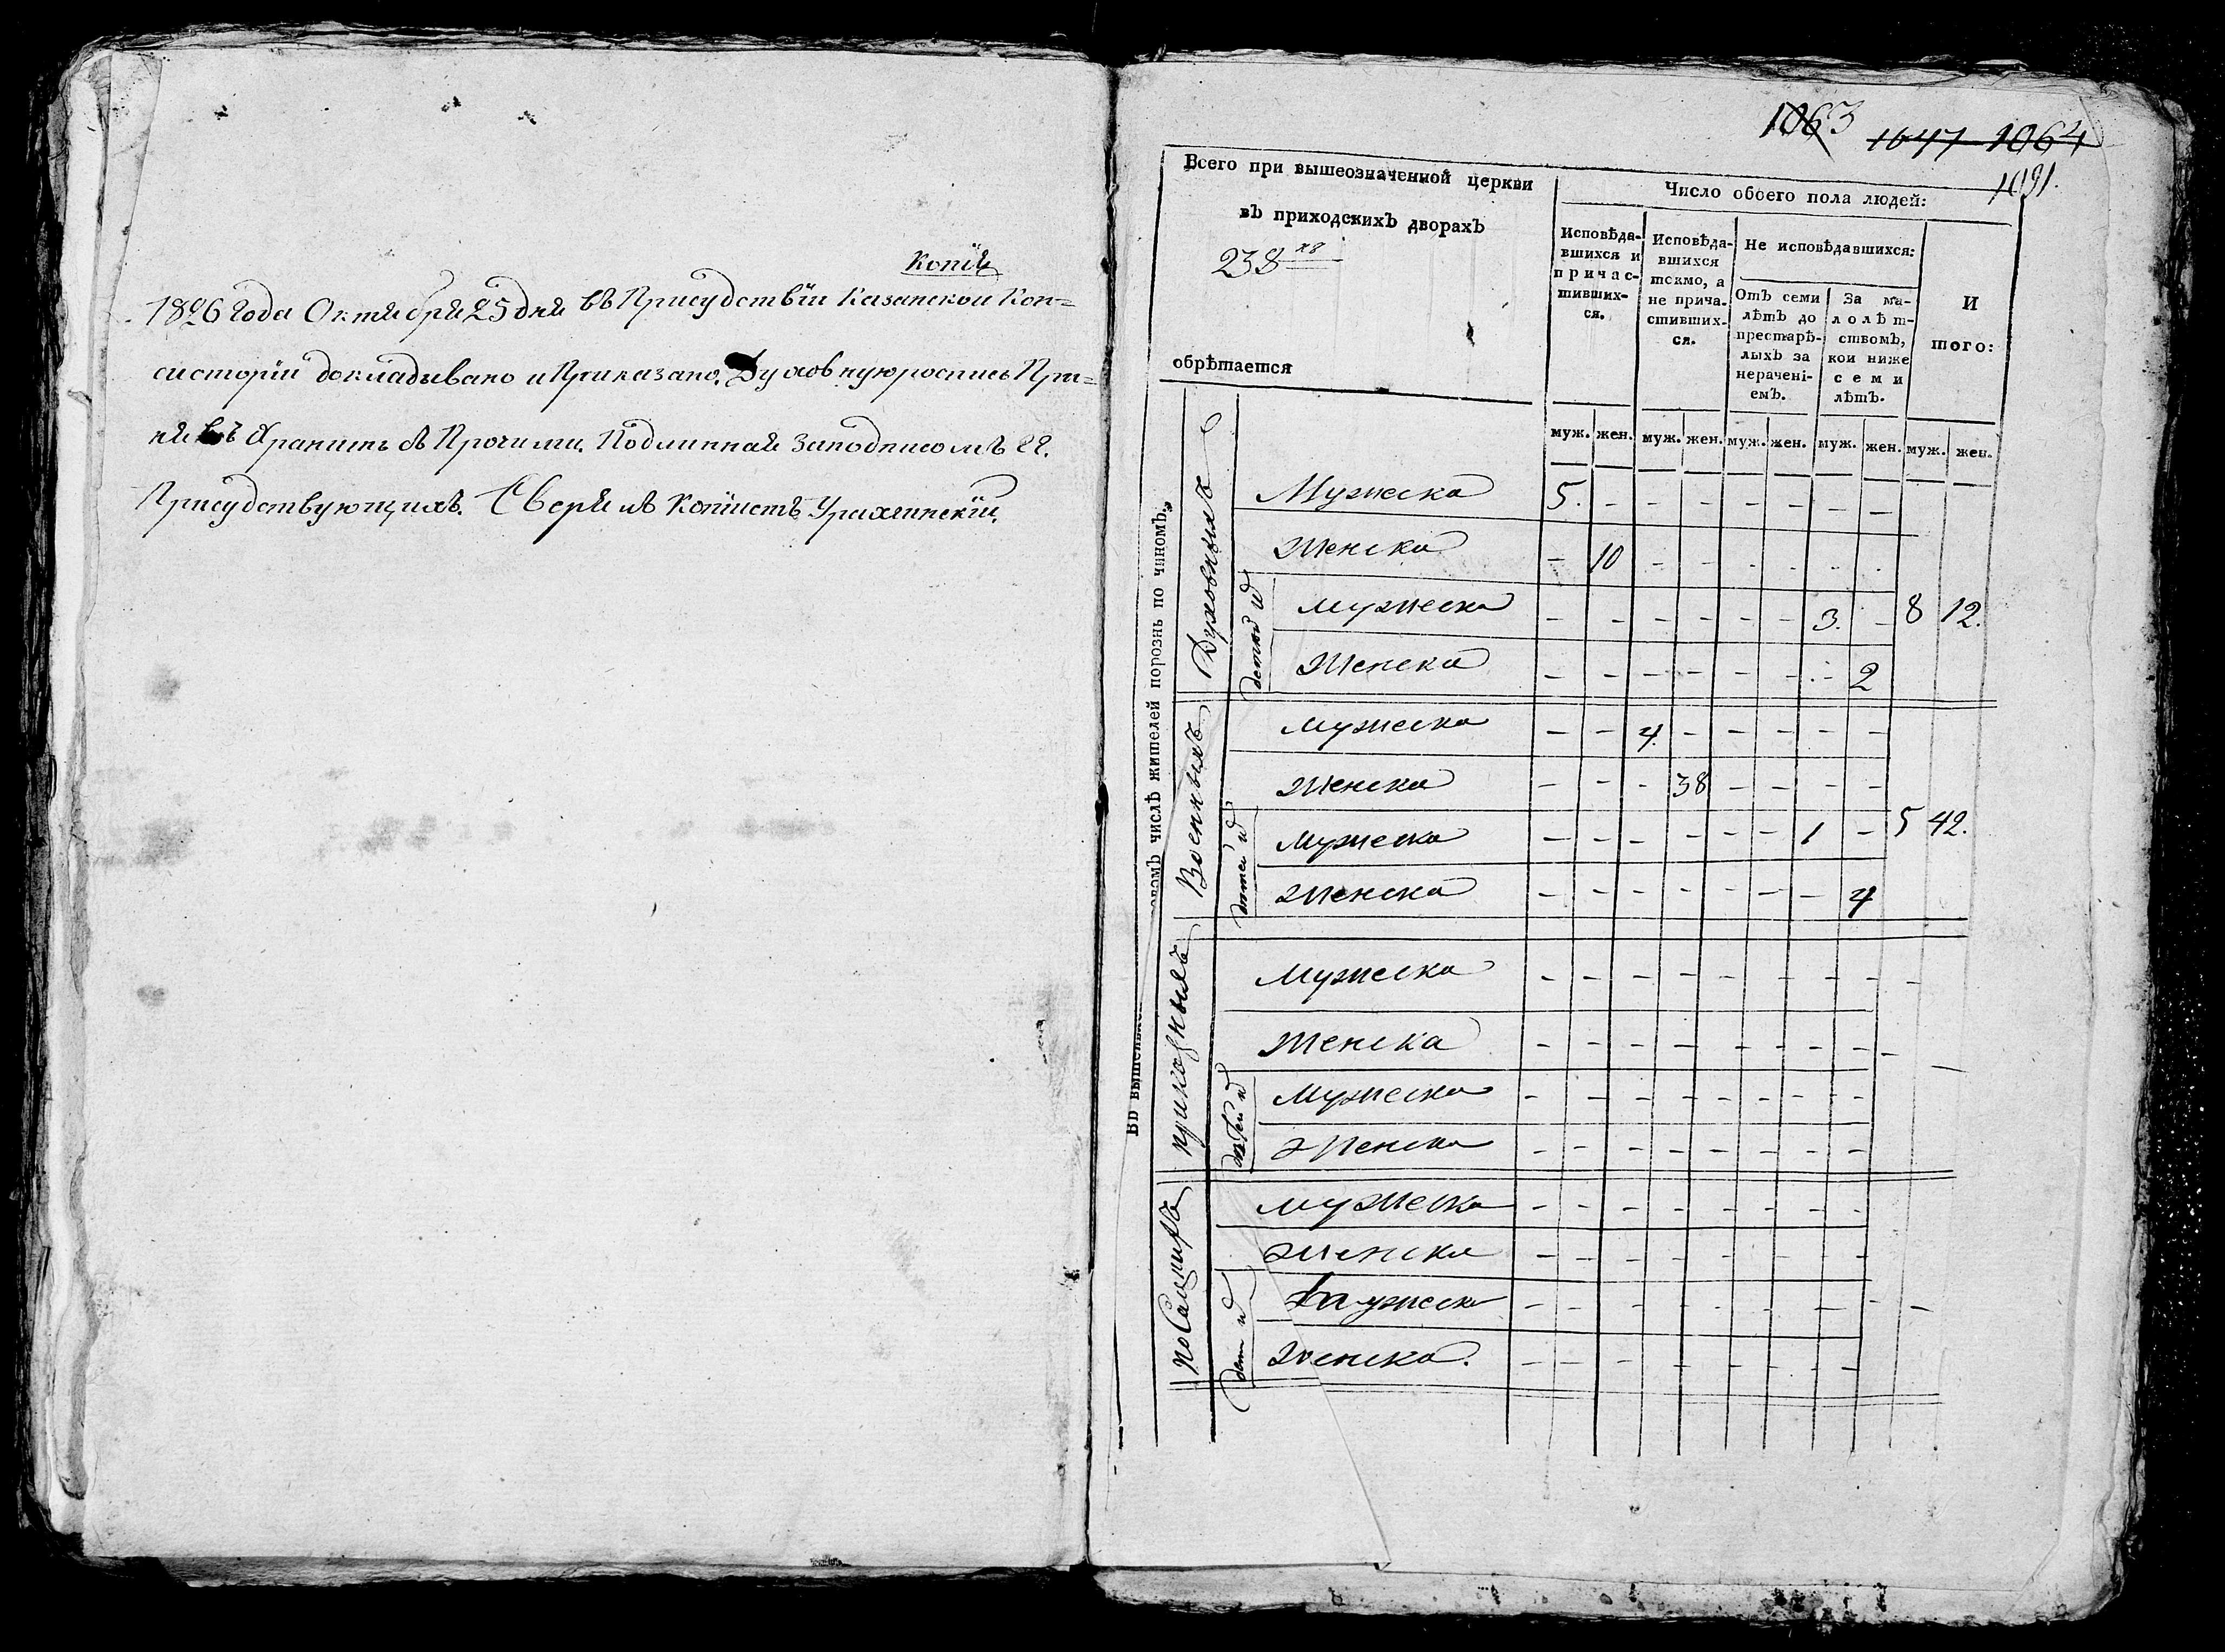 Копія
1826 года Октября 25 дня въ Присудствіи Казанской Кон=
систоріи докладывано и Приказано. Духовную роспись При=
нявъ Хранить съ Прочими. Подлинная Заподписомъ ГГ.
Присудствующихъ. Сверялъ Копіистъ
1063
1047 1064
1091.
Всего при вышеозначенной церкви
въ приходскихъ дворахъ
238 хъ
обрѣтается
Число обоего пола людей:
Исповѣда-
вшихся и
причас-
тивших-
ся.
Исповѣда-
вшихся
токмо, а
не прича-
стивших-
ся.
Не исповѣдавшихся:
Отъ семи
лѣтъ до
престарѣ-
лыхъ за
нерачені-
емъ.
За ма-
лолѣт-
ствомъ,
кои ниже
семи
лѣтъ.
И
того:
муж. жен. муж. жен. муж. жен. муж. жен. муж. жен.
числѣ жителей порознь по чиномъ.
Духовныхъ
Мужеска 5. - - - - - - -
Женска - 10 - - - - - -
детей ихъ
мужеска - - - - - - 3. - 8 12.
Женска - - - - - - - 2
Военныхъ
мужеска - - 4. - - - - -
Женска - - - 38 - - - -
детей ихъ
мужеска - - - - - - 1 - 5 42.
Женска - - - - - - - 4
приказныхъ
мужеска - - - - - - - - -
Женска - - - - - - - - - -
детей ихъ
Мужеска - - - - - - - -
Женска - - - - - - - -
посацкихъ
мужеска - - - - - - - -
Женска - - - - - - - -
дет ихъ
мужеска - - - - - - - - -
женска. - - - - - - - -